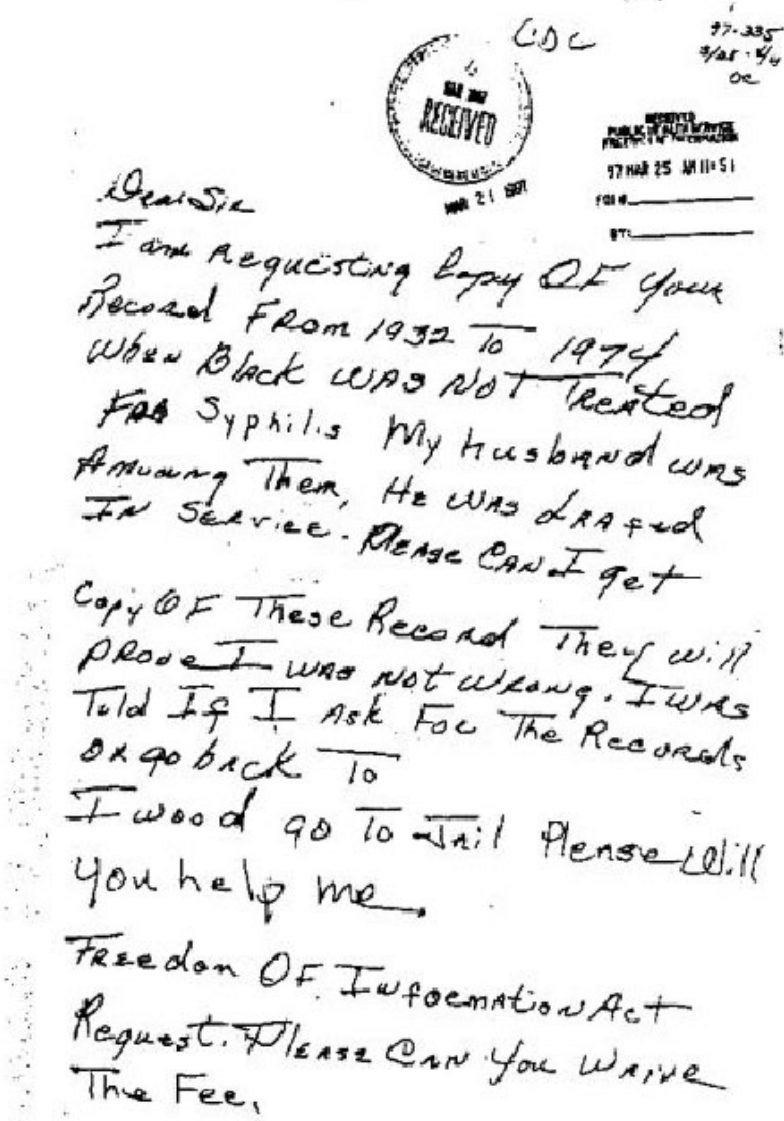 CDC
97-335
3/25 - 4/4
OC
MAR 1997
RECEIVED
MAR 21 1997
RECEIVED
PUBLIC HEALTH SERVICE
FREEDOM OF INFORMATION
97 MAR 25 AM 11:51
FOI #
BY:
Dear Sir
I am Requesting Copy OF Your
Record From 1932 To 1974
When Black WAS NOT Treated
FOR Syphilis My Husband was
Amoung Them, He was drafed
IN Service. Please CAN I get
Copy OF These Record They will
prove I was not wrong. I was
Told If I Ask For The Records
or go back To
I wood go To Jail Please Will
You help me.
Freedon OF Information Act
Request. Please Can You Waive
The Fee.